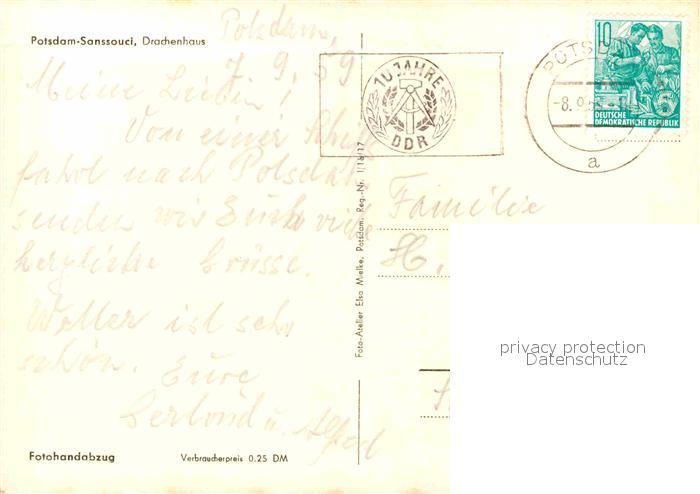 Potsdam-Sanssouci, Drachenhaus
Potsdam,
7. 9. 59
Meine Lieben!
Von einer Schiff
fahrt nach Potsdam
senden wir Euch viele
herzliche Grüsse.
Wetter ist sehr
schön. Eure
Gertrud u. Alfred
Fotohandabzug
Verbraucherpreis 0.25 DM
Foto-Atelier Elsa Mielke, Potsdam, Reg.-Nr. I/16/17
10 JAHRE
DDR
POTSD
-8. 9. 5
a
10
DEUTSCHE
DEMOKRATISCHE REPUBLIK
Familie
H.
privacy protection
Datenschutz